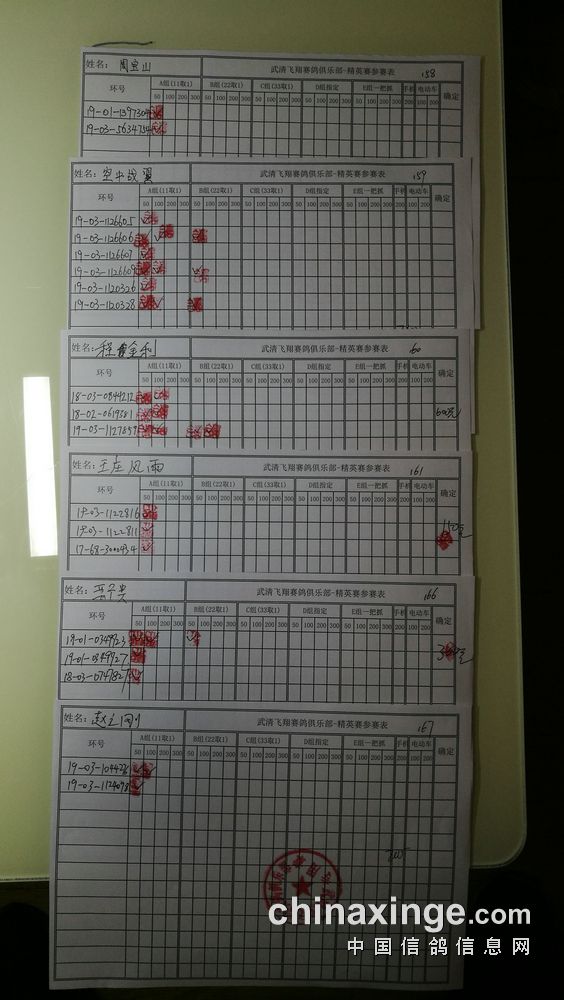 姓名：周宝山 武清飞翔赛鸽俱乐部-精英赛参赛表 158
环号 A组(11取1) B组(22取1) C组(33取1) D组指定 E组一把抓 手机 电动车 确定
50 100 200 300 50 100 200 300 50 100 200 300 50 100 200 300 50 100 200 300 100 100 200
19-01-1397304
19-03-5634754
姓名：空中战翼 武清飞翔赛鸽俱乐部-精英赛参赛表 159
环号 A组(11取1) B组(22取1) C组(33取1) D组指定 E组一把抓 手机 电动车 确定
50 100 200 300 50 100 200 300 50 100 200 300 50 100 200 300 50 100 200 300 100 100 200
19-03-1126605
19-03-1126606
19-03-1126607
19-03-1126609
19-03-1120326
19-03-1120328
姓名：程 金利 武清飞翔赛鸽俱乐部-精英赛参赛表 160
环号 A组(11取1) B组(22取1) C组(33取1) D组指定 E组一把抓 手机 电动车 确定
50 100 200 300 50 100 200 300 50 100 200 300 50 100 200 300 50 100 200 300 100 100 200
18-03-0844212
18-02-0619381 600元
19-03-1127859
姓名：王庄风雨 武清飞翔赛鸽俱乐部-精英赛参赛表 161
环号 A组(11取1) B组(22取1) C组(33取1) D组指定 E组一把抓 手机 电动车 确定
50 100 200 300 50 100 200 300 50 100 200 300 50 100 200 300 50 100 200 300 100 100 200
19-03-1122816
19-03-1122811 150元
17-68-3000434
姓名： 武清飞翔赛鸽俱乐部-精英赛参赛表 166
环号 A组(11取1) B组(22取1) C组(33取1) D组指定 E组一把抓 手机 电动车 确定
50 100 200 300 50 100 200 300 50 100 200 300 50 100 200 300 50 100 200 300 100 100 200
19-01-0349923
19-01-0349927
18-03-0747827
姓名：赵立刚 武清飞翔赛鸽俱乐部-精英赛参赛表 167
环号 A组(11取1) B组(22取1) C组(33取1) D组指定 E组一把抓 手机 电动车 确定
50 100 200 300 50 100 200 300 50 100 200 300 50 100 200 300 50 100 200 300 100 100 200
19-03-1124098
chinaxinge.com
中国信鸽信息网